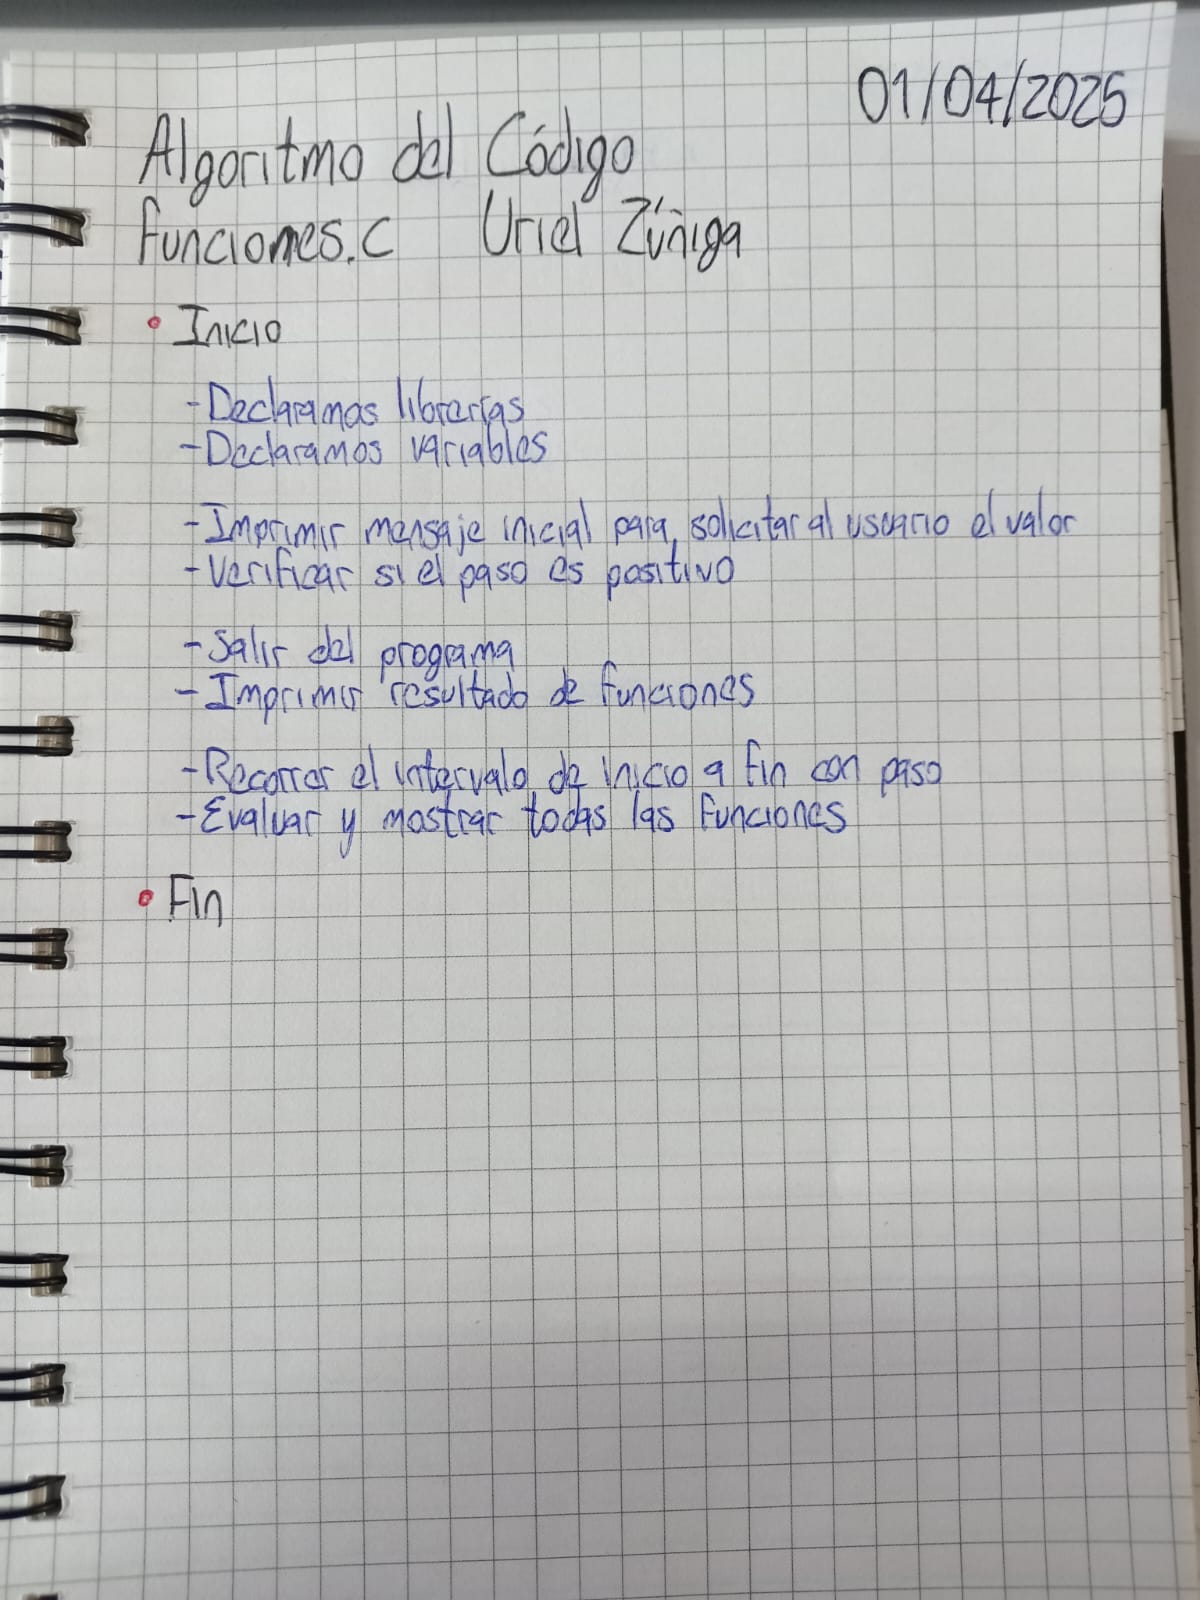 01/04/2025
Algoritmo del Código
funciones.c Uriel Zúñiga
• Inicio
- Declaramos librerías
- Declaramos variables
- Imprimir mensaje inicial para solicitar al usuario el valor
- Verificar si el paso es positivo
- Salir del programa
- Imprimir resultado de funciones
- Recorrer el intervalo de inicio a fin con paso
- Evaluar y mostrar todas las funciones
• Fin